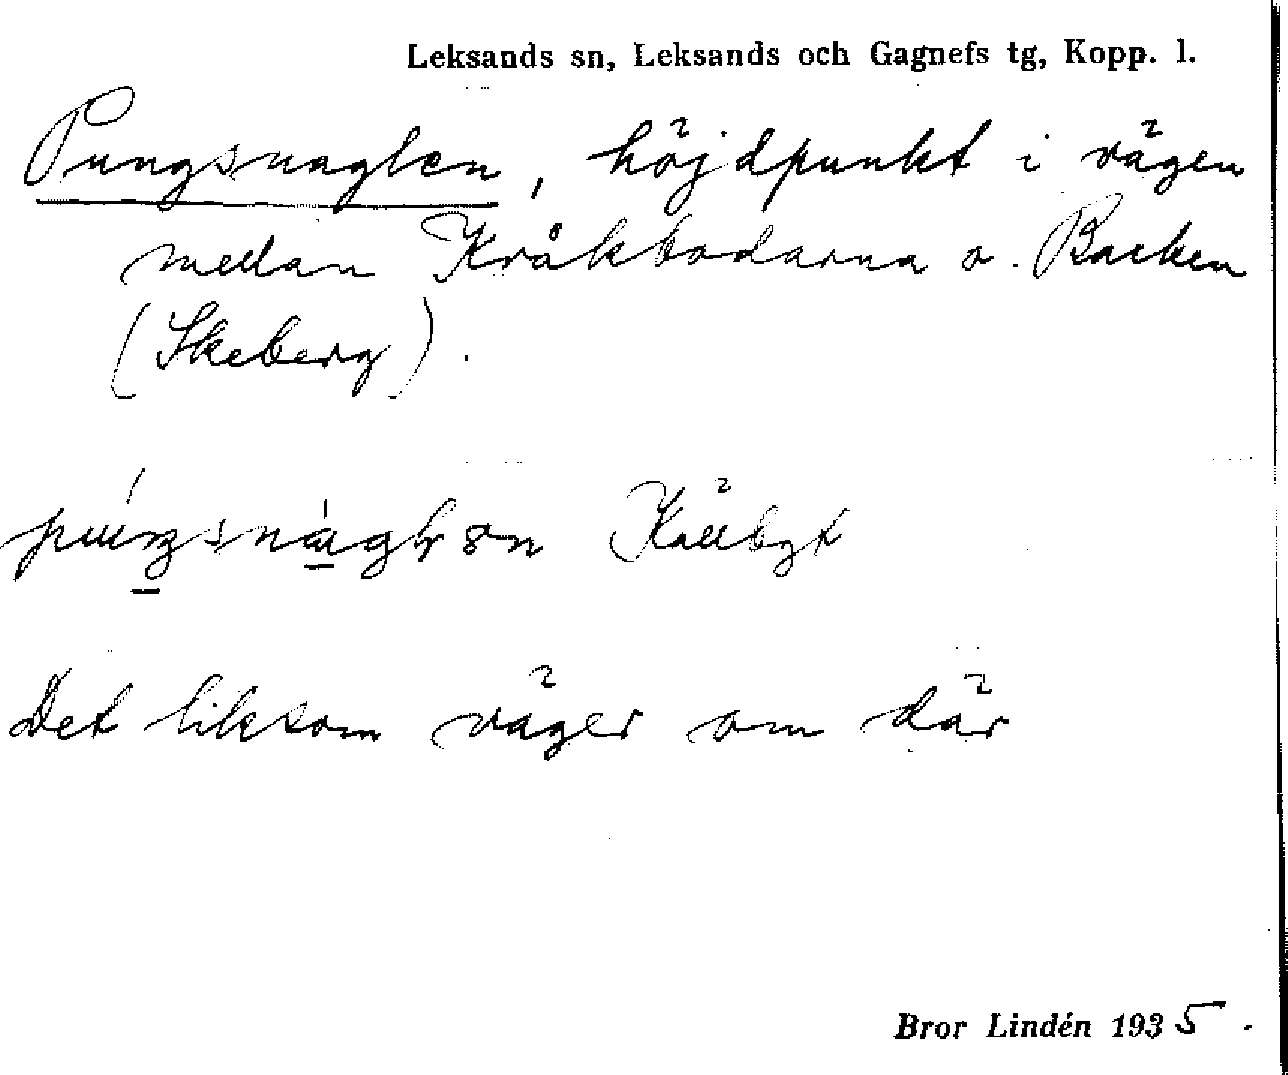 Leksands sn, Leksands och Gagnefs tg, Kopp. l.
Pungsnaglen, höjdpunkt i vägen
mellan Kråkbodarna o. Backen
(Skeberg).
Källbyt
Det liksom väger om där
Bror Lindén 1935.